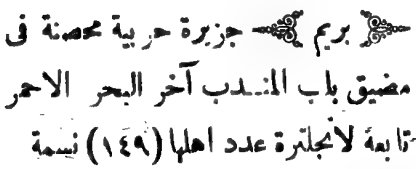 بريم جزيرة حربية محصنة فى
مضيق باب المندب آخر البحر الاحمر
تابعة لانجلترة عدد اهلها (١٤٩) نسمة